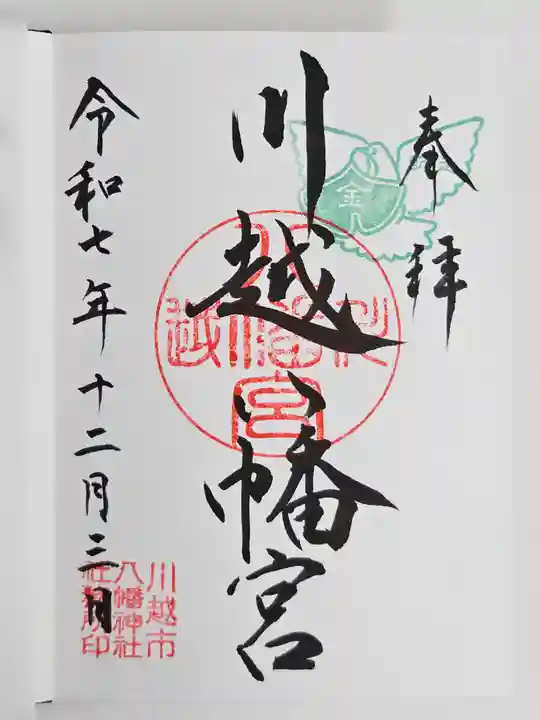 奉拝
金
川越八幡宮
令和七年十二月三日
川越市
八幡神社
社務所印